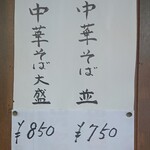 中華そば 並
¥750
中華そば 大盛
¥850